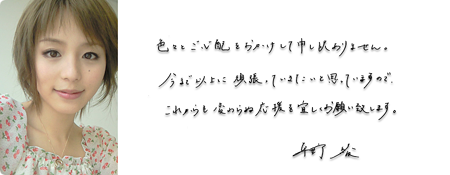 色々とご心配をおかけして申し訳ありません。
今まで以上に頑張っていきたいと思っていますので、
これからも変わらぬ応援を宜しくお願い致します。